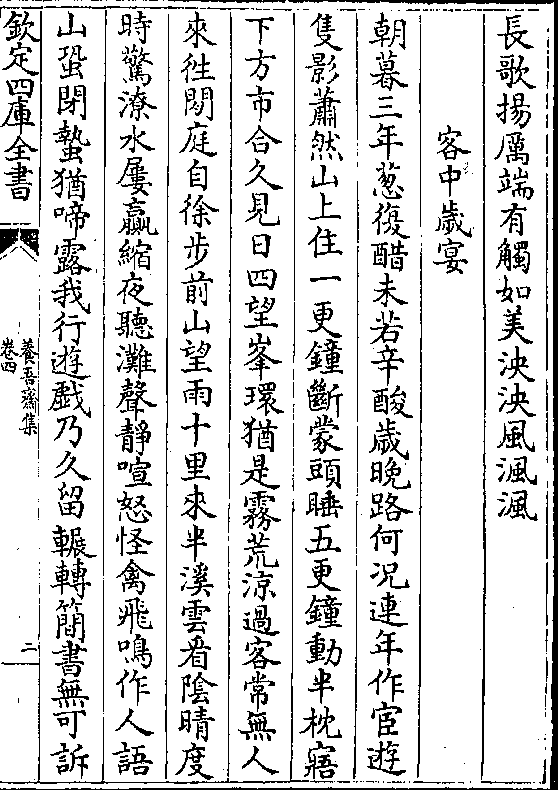 長歌揚厲端有觸如美泱泱風渢渢
客中歲宴
朝暮三年葱復醋未若辛酸歲晚路何况連年作宦遊
隻影蕭然山上住一更鐘斷蒙頭睡五更鐘動半枕寤
下方市合久見日四望峯環猶是霧荒涼過客常無人
來徃閱庭自徐步前山望雨十里來半溪雲看陰晴度
時驚潦水屢贏縮夜聽灘聲靜喧怒怪禽飛鳴作人語
山蛩閉蟄猶啼露我行遊戲乃久留輾轉簡書無可訴
欽定四庫全書
養吾齋集
卷四
二